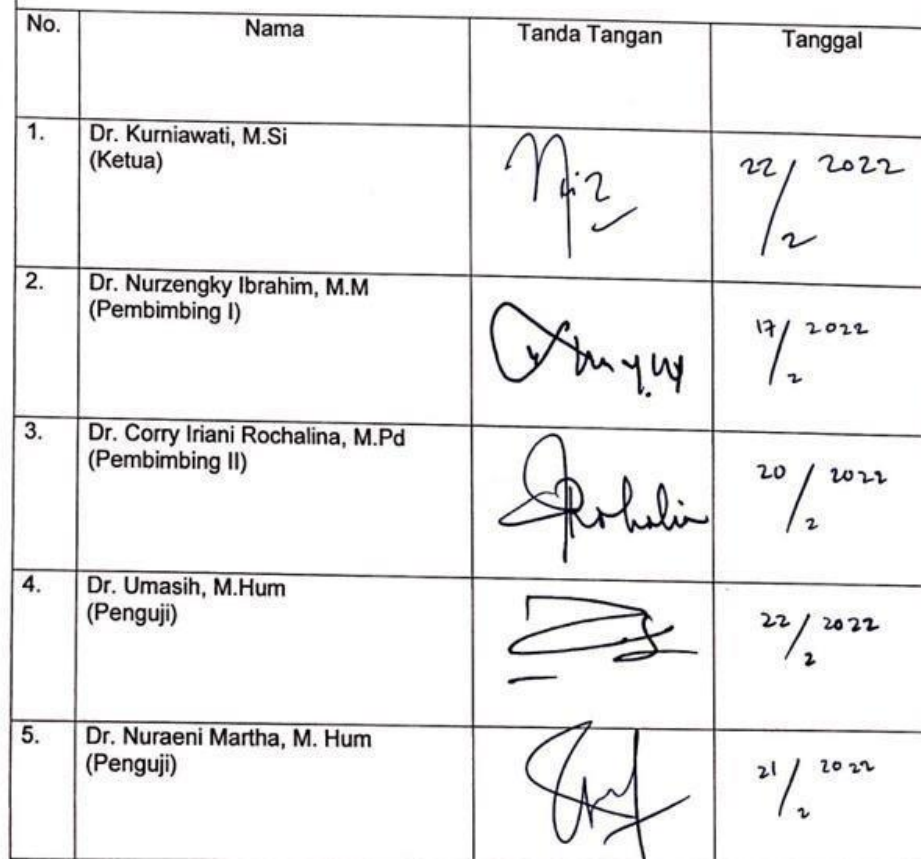 No. Nama Tanda Tangan Tanggal
1. Dr. Kurniawati, M.Si
(Ketua)
22/2 2022
2. Dr. Nurzengky Ibrahim, M.M
(Pembimbing I)
17/2 2022
3. Dr. Corry Iriani Rochalina, M.Pd
(Pembimbing II)
20/2 2022
4. Dr. Umasih, M.Hum
(Penguji)
22/2 2022
5. Dr. Nuraeni Martha, M. Hum
(Penguji)
21/2 2022